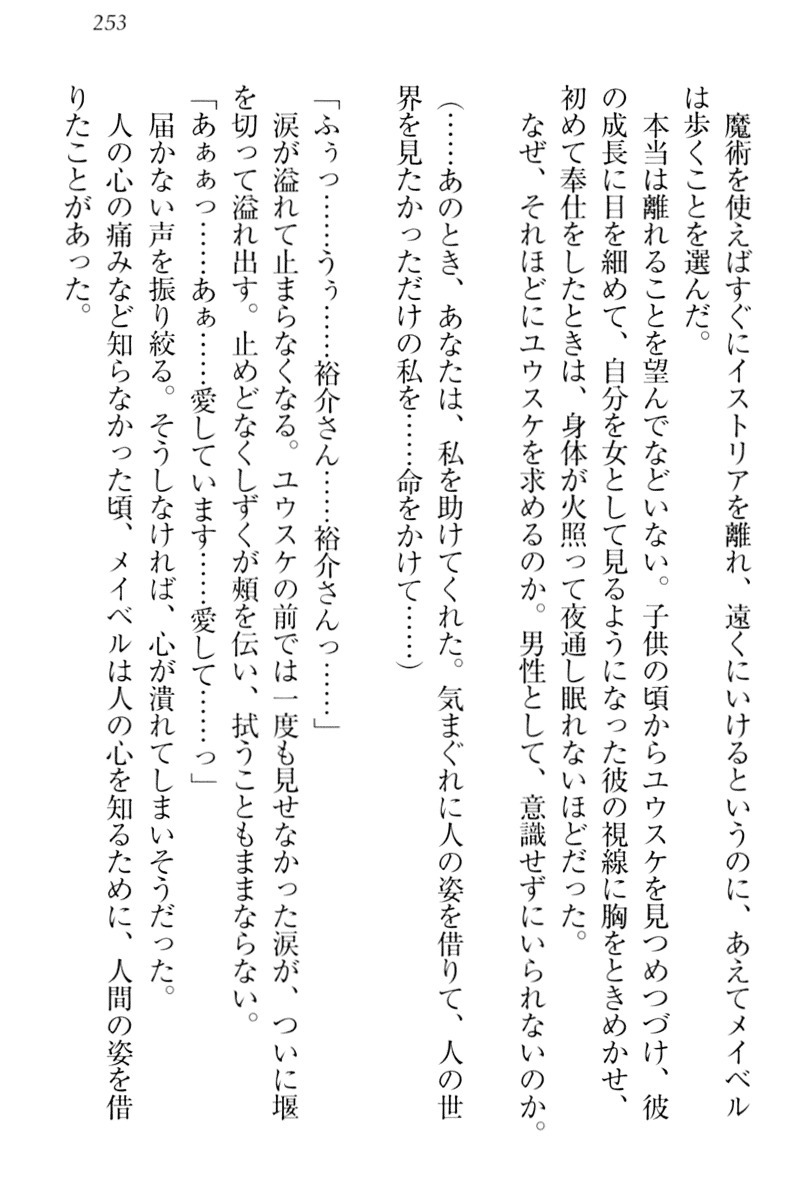 253
魔術を使えばすぐにイストリアを離れ、遠くにいけるというのに、あえてメイベル
は歩くことを選んだ。
本当は離れることを望んでなどいない。子供の頃からユウスケを見つめつづけ、彼
の成長に目を細めて、自分を女として見るようになった彼の視線に胸をときめかせ、
初めて奉仕をしたときは、身体が火照って夜通し眠れないほどだった。
なぜ、それほどにユウスケを求めるのか。男性として、意識せずにいられないのか。
(……あのとき、あなたは、私を助けてくれた。気まぐれに人の姿を借りて、人の世
界を見たかっただけの私を……命をかけて……)
「ふぅっ……うぅ……裕介さん……裕介さんっ……」
涙が溢れて止まらなくなる。ユウスケの前では一度も見せなかった涙が、ついに堰
を切って溢れ出す。止めどなくしずくが頬を伝い、拭うこともままならない。
「あぁぁっ……あぁ……愛しています……愛して……っ」
届かない声を振り絞る。そうしなければ、心が潰れてしまいそうだった。
人の心の痛みなど知らなかった頃、メイベルは人の心を知るために、人間の姿を借
りたことがあった。